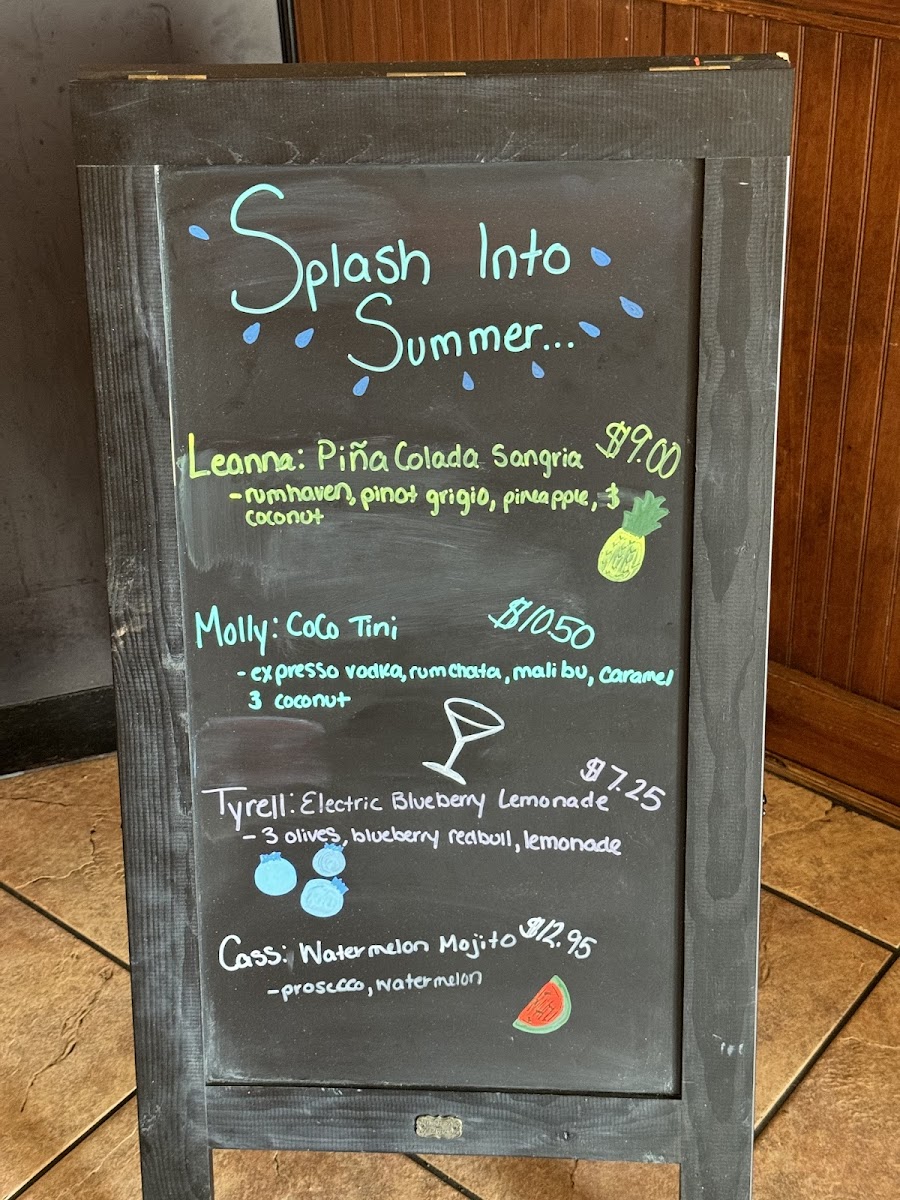 Splash Into
Summer...
Leanna: Piña Colada Sangria $9.00
-rumhaven, pinot grigio, pineapple, &
coconut
Molly: CoCo Tini $10.50
-expresso vodka, rumchata, malibu, caramel
& coconut
Tyrell: Electric Blueberry Lemonade $7.25
- 3 olives, blueberry redbull, lemonade
Cass: Watermelon Mojito $12.95
-prosecco, watermelon